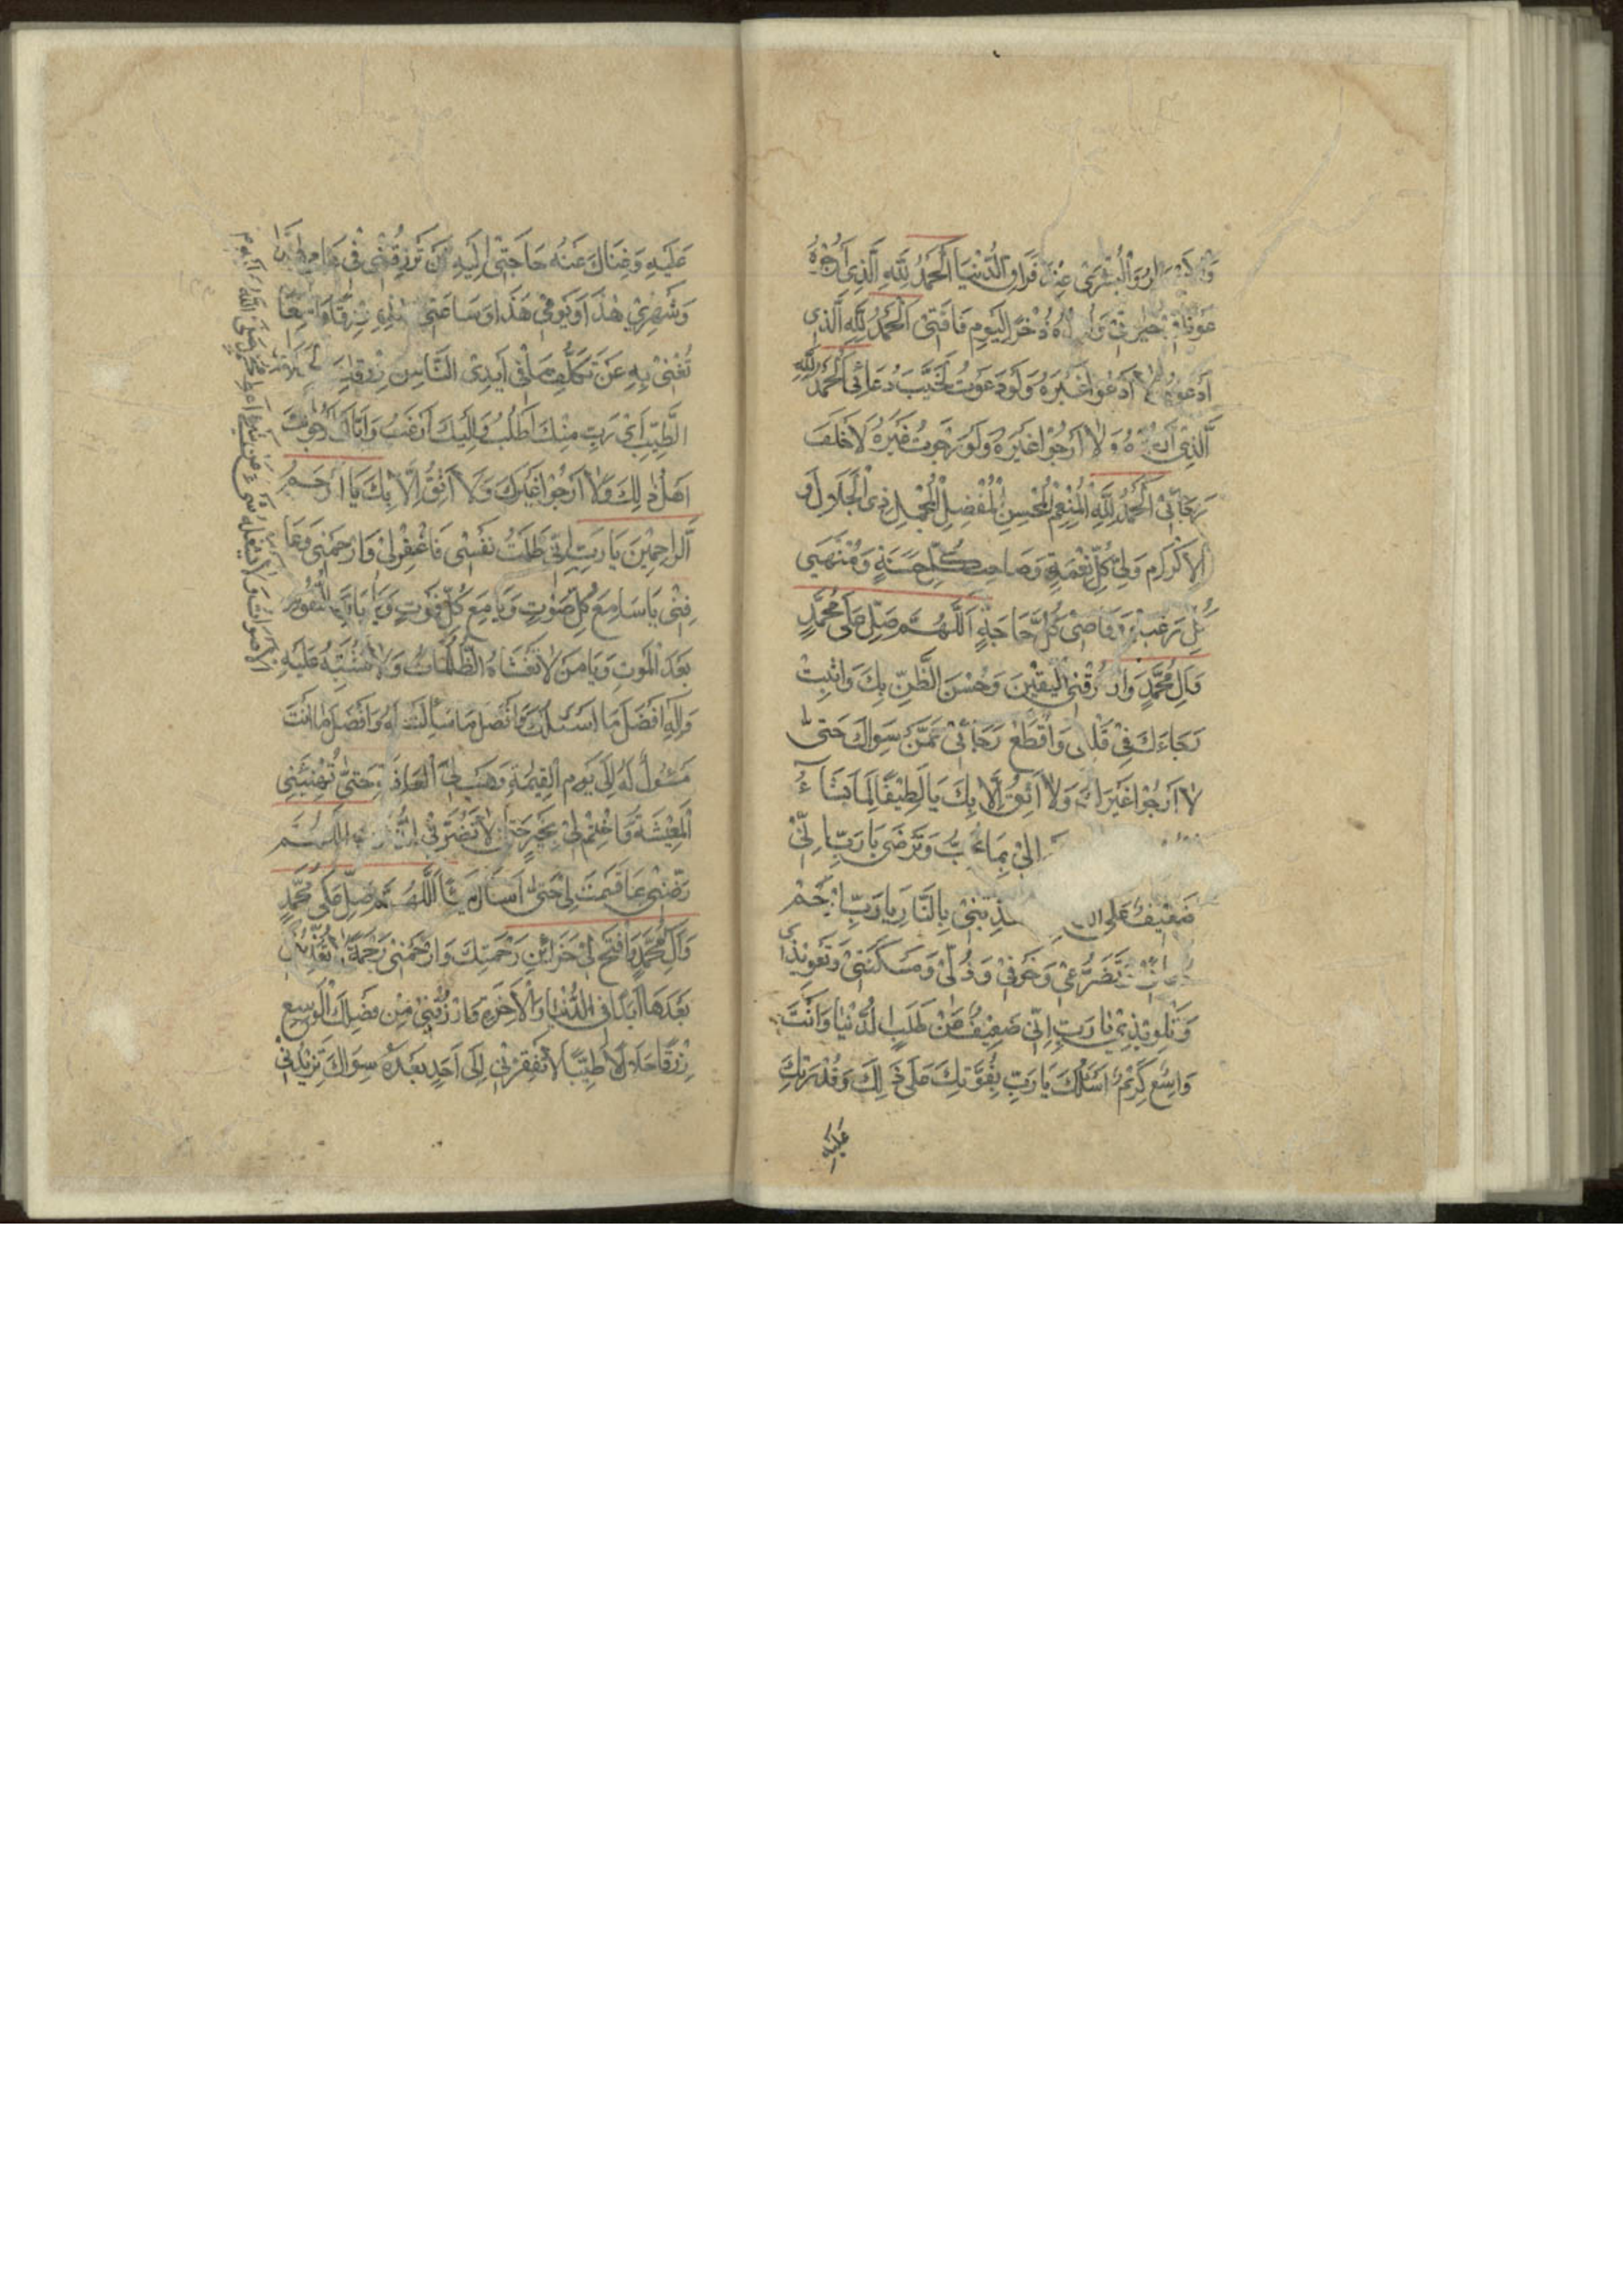 وَالْبُشْرَىٰ عِنْدَ فِرَاقِ الدُّنْيَا اَلْحَمْدُ لِلّٰهِ الَّذِي اَرْجُوهُ
عَوْنًا فِي حَيٰوتِي وَ ذُخْرًا لِيَوْمِ فَاقَتِي اَلْحَمْدُ لِلّٰهِ الَّذِي
اَدْعُوهُ وَلَا اَدْعُوا غَيْرَهُ وَلَوْ دَعَوْتُ لَخَيَّبَ دُعَائِي اَلْحَمْدُ لِلّٰهِ
الَّذِي وَلَا اَرْجُوا غَيْرَهُ وَلَوْ رَجَوْتُ غَيْرَهُ لَاَخْلَفَ
رَجَائِي اَلْحَمْدُ لِلّٰهِ الْمُنْعِمِ الْمُحْسِنِ الْمُفْضِلِ الْمُجْمِلِ ذِي الْجَلَالِ وَ
الْاِكْرَامِ وَلِيُّ كُلِّ نِعْمَةٍ وَصَاحِبُ كُلِّ حَسَنَةٍ وَمُنْتَهٰى
كُلِّ رَغْبَةٍ وَقَاضِي كُلِّ حَاجَةٍ اَللّٰهُمَّ صَلِّ عَلٰى مُحَمَّدٍ
وَاٰلِ مُحَمَّدٍ وَارْزُقْنِي الْيَقِينَ وَحُسْنَ الظَّنِّ بِكَ وَاثْبِتْ
رَجَاءَكَ فِي قَلْبِي وَاقْطَعْ رَجَائِي عَمَّنْ سِوَاكَ حَتّٰى
لَا اَرْجُوا غَيْرَكَ وَلَا اَثِقُ اِلَّا بِكَ يَا لَطِيفًا لِمَا يَشَاءُ
بِمَا تُحِبُّ وَتَرْضٰى يَا رَبِّ اِنِّي
ضَعِيفٌ عَلَى بِالنَّارِ يَا رَبِّ ارْحَمْ
تَضَرُّعِي وَخَوْفِي وَذُلِّي وَمَسْكَنَتِي وَتَعْوِيذِي
وَتَلْوِيذِي يَا رَبِّ اِنِّي ضَعِيفٌ عَنْ طَلَبِ الدُّنْيَا وَاَنْتَ
وَاسِعٌ كَرِيمٌ اَسْأَلُكَ يَا رَبِّ بِقُوَّتِكَ عَلٰى ذٰلِكَ وَقُدْرَتِكَ
عَلَيْهِ
عَلَيْهِ وَغِنَاكَ عَنْهُ حَاجَتِي اِلَيْهِ اَنْ تَرْزُقَنِي فِي عَامِي هٰذَا
وَشَهْرِي هٰذَا وَيَوْمِي هٰذَا وَسَاعَتِي هٰذِهِ رِزْقًا وَاسِعًا
تُغْنِي بِهِ عَنْ تَكَلُّفِ مَا فِي اَيْدِي النَّاسِ مِنْ رِزْقِكَ
الطَّيِّبِ اَيْ رَبِّ مِنْكَ اَطْلُبُ وَاِلَيْكَ اَرْغَبُ وَاِيَّاكَ اَرْجُو
اَهْلُ ذٰلِكَ وَلَا اَرْجُوا غَيْرَكَ وَلَا اَثِقُ اِلَّا بِكَ يَا اَرْحَمَ
الرَّاحِمِينَ يَا رَبِّ اِنِّي ظَلَمْتُ نَفْسِي فَاغْفِرْ لِي وَارْحَمْنِي وَعَا
فِنِي يَا سَامِعَ كُلِّ صَوْتٍ وَيَا جَامِعَ كُلِّ فَوْتٍ وَيَا بَارِئَ النُّفُوسِ
بَعْدَ الْمَوْتِ وَيَا مَنْ لَا تَغْشَاهُ الظُّلُمَاتُ وَلَا تَشْتَبِهُ عَلَيْهِ
وَاٰلِهِ اَفْضَلَ مَا اَسْئَلُكَ وَاَفْضَلَ مَا سُئِلْتَ لَهُ وَاَفْضَلَ مَا اَنْتَ
مَسْئُولٌ لَهُ اِلٰى يَوْمِ الْقِيٰمَةِ وَهَبْ لِيَ الْعَافِيَةَ حَتّٰى تُهَنِّئَنِي
الْمَعِيشَةَ وَاخْتِمْ لِي بِخَيْرٍ حَتّٰى لَا تَضُرَّنِي الذُّنُوبُ اَللّٰهُمَّ
رَضِّنِي بِمَا قَسَمْتَ لِي حَتّٰى لَا اَسْأَلَ شَيْئًا اَللّٰهُمَّ صَلِّ عَلٰى مُحَمَّدٍ
وَاٰلِ مُحَمَّدٍ وَافْتَحْ لِي خَزَائِنَ رَحْمَتِكَ وَارْحَمْنِي رَحْمَةً لَا تُعَذِّبْنِي
بَعْدَهَا اَبَدًا فِي الدُّنْيَا وَالْاٰخِرَةِ وَارْزُقْنِي مِنْ فَضْلِكَ الْوَاسِعِ
رِزْقًا حَلَالًا طَيِّبًا لَا تُفْقِرْنِي اِلٰى اَحَدٍ بَعْدَهُ سِوَاكَ تَزِيدُنِي
الْاَصْوَاتُ وَلَا يَشْغَلُهُ شَيْءٌ عَنْ شَيْءٍ